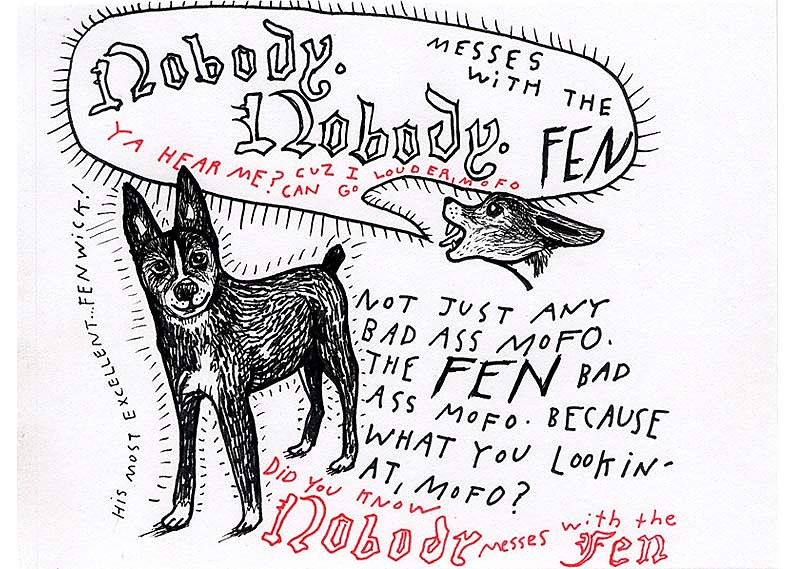 Nobody.
MESSES
WITH THE
Nobody.
FEN
YA HEAR ME? CUZ I LOUDER, MOFO
CAN GO
HIS MOST EXCELLENT...FENWICK!
NOT JUST ANY
BAD ASS MOFO.
THE FEN BAD
ASS MOFO. BECAUSE
WHAT YOU LOOKIN-
AT, MOFO?
DID YOU KNOW
Nobody messes with the Fen